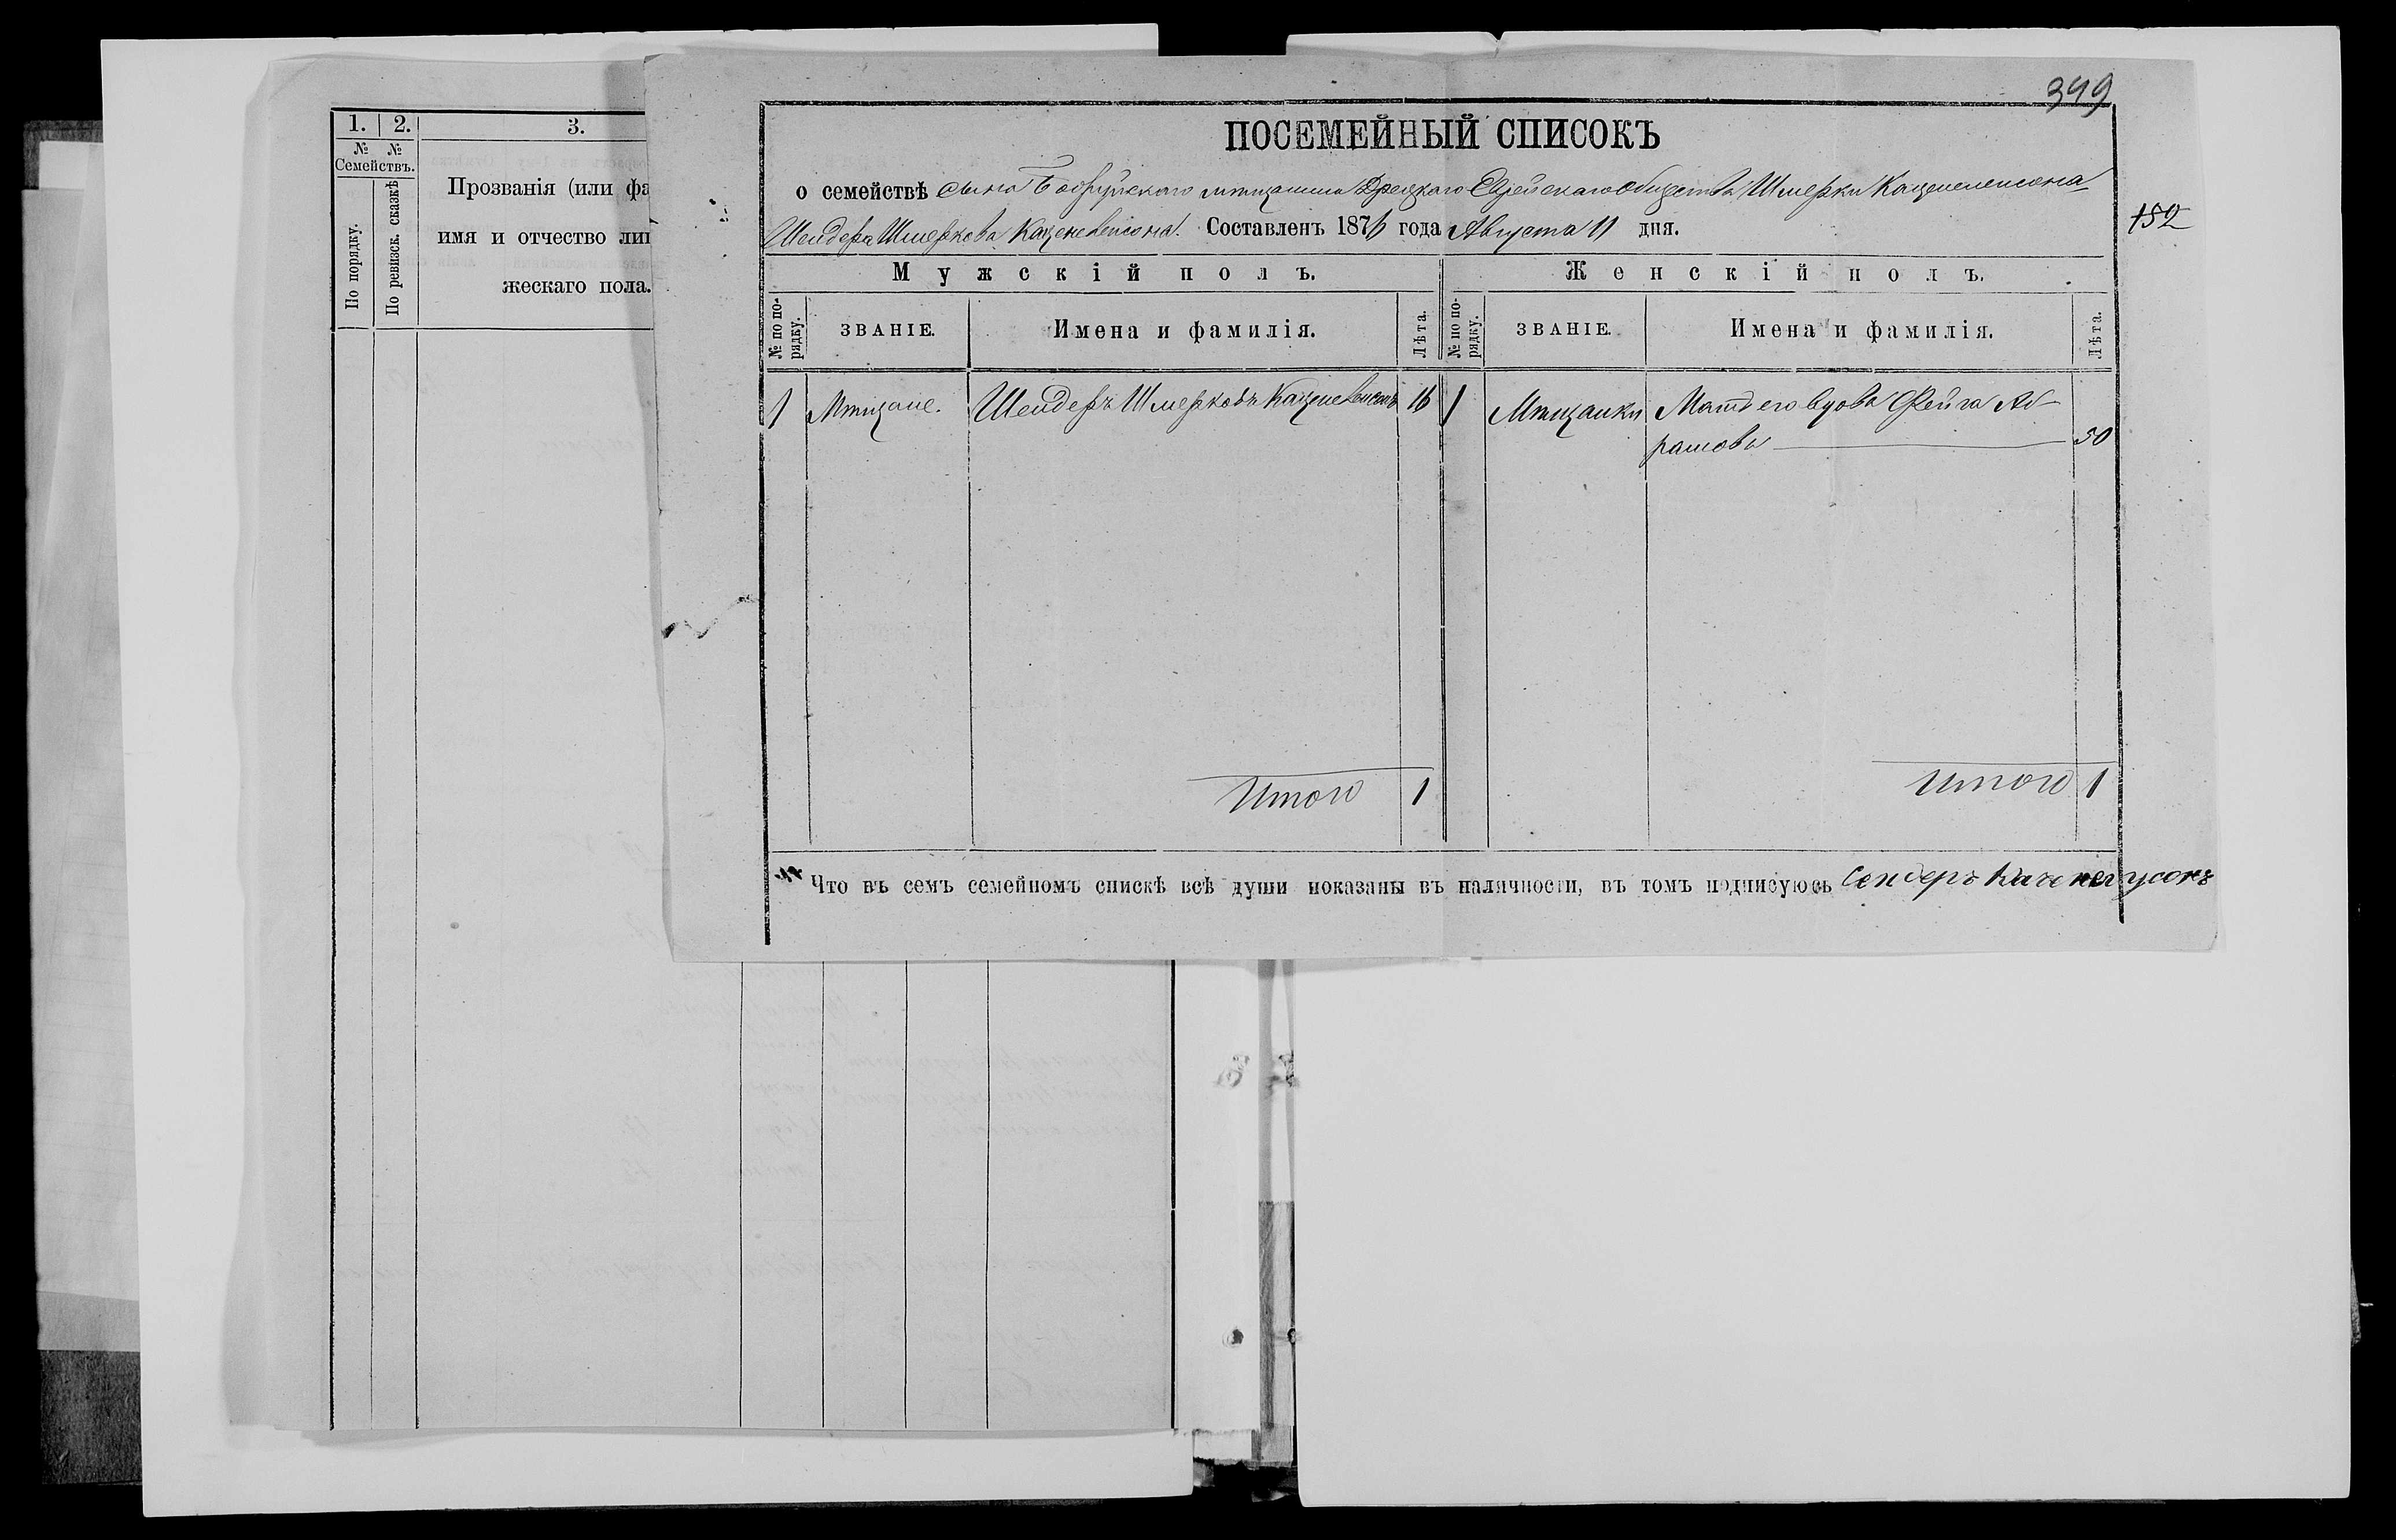 1. 2. 3.
№ №
Семействъ.
По порядку.
По ревизск. сказкѣ
Прозванія (или фа
имя и отчество лиц
жескаго пола.
399
ПОСЕМЕЙНЫЙ СПИСОКЪ
о семействѣ сына Бобруйскаго мѣщанина Еврейскаго Общества Шмерки Каценеленсона
Шендера Шмеркова Каценеленсона. Составленъ 1874 года Августа 11 дня.
152
Мужскій полъ. Женскій полъ.
№ по порядку. ЗВАНІЕ. Имена и фамилія. Лѣта. № по порядку. ЗВАНІЕ. Имена и фамилія. Лѣта.
1 Мѣщане. Шендеръ Шмерковъ Каценеленсонъ 16 1 Мѣщанки Мать его вдова Фейга Аб-
рамова 50
Итого 1 Итого 1
Что въ семъ семейномъ спискѣ всѣ души показаны въ наличности, въ томъ подписуюсь Сендеръ